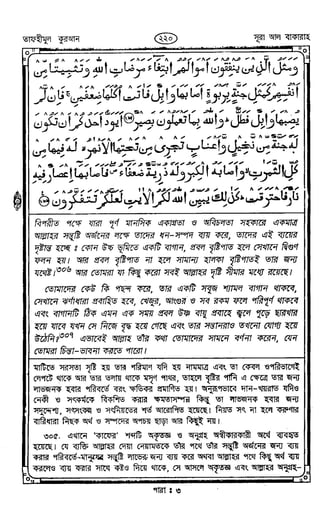 তাফহীমুল কুরআন
২২০
সূরা আল বাকারাহ
وَمَثَلُ الَّذِينَ يُنْفِقُونَ أَمْوَالَهُمُ ابْتِغَاءَ مَرْضَاتِ اللهِ وَتَثْبِيتًا مِنْ
أَنْفُسِهِمْ كَمَثَلِ جَنَّةٍ بِرَبْوَةٍ أَصَابَهَا وَابِلٌ فَاتَتْ أُكُلَهَا ضِعْفَيْنِ ۚ فَإِنْ لَمْ
يُصِبْهَا وَابِلٌ فَطَلٌّ ۗ وَاللهُ بِمَا تَعْمَلُونَ بَصِيرٌ ﴿٢٦٥﴾ أَيَوَدُّ أَحَدُكُمْ أَنْ تَكُونَ
لَهُ جَنَّةٌ مِنْ نَخِيلٍ وَأَعْنَابٍ تَجْرِي مِنْ تَحْتِهَا الْأَنْهَرُ ۙ لَهُ فِيهَا مِنْ
كُلِّ الثَّمَرَاتِ ۙ وَأَصَابَهُ الْكِبَرُ وَلَهُ ذُرِّيَّةٌ ضُعَفَاءُ ۖ فَأَصَابَهَا إِعْصَارٌ فِيهِ
نَارٌ فَاحْتَرَقَتْ ۗ كَذَلِكَ يُبَيِّنُ اللهُ لَكُمُ الْآيَاتِ لَعَلَّكُمْ تَتَفَكَّرُونَ
বিপরীত পক্ষে যারা পূর্ণ মানসিক একাগ্রতা ও অবিচলতা সহকারে একমাত্র
আল্লাহর সন্তুষ্টি অর্জনের লক্ষে তাদের ধন-সম্পদ ব্যয় করে, তাদের এই ব্যয়ের
দৃষ্টান্ত হচ্ছে : কোন উচ্চ ভূমিতে একটি বাগান, প্রবল বৃষ্টিপাত হলে সেখানে দ্বিগুণ
ফলন হয়। আর প্রবল বৃষ্টিপাত না হলে সামান্য হালকা বৃষ্টিপাতই তার জন্য
যথেষ্ট।৩০৬ আর তোমরা যা কিছু করো সবই আল্লাহর দৃষ্টি সীমার মধ্যে রয়েছে।
তোমাদের কেউ কি পছন্দ করে, তার একটি সবুজ শ্যামল বাগান থাকবে,
সেখানে ঝর্ণাধারা প্রবাহিত হবে, খেজুর, আংগুর ও সব রকম ফলে পরিপূর্ণ থাকবে
এবং বাগানটি ঠিক এমন এক সময় প্রবল উষ্ণ বায়ু প্রবাহে জ্বলে পুড়ে ছারখার
হয়ে যাবে যখন সে নিজে বৃদ্ধ হয়ে গেছে এবং তার সন্তানরাও তখনো যোগ্য হয়ে
উঠেনি।৩০৭ এভাবেই আল্লাহ তাঁর কথা তোমাদের সামনে বর্ণনা করেন, যেন
তোমরা চিন্তা-ভাবনা করতে পারো।
মাটিতে সরসতা সৃষ্টি হয় তার পরিমাণ যদি হয় নামমাত্র এবং তা কেবল ওপরিভাগেই
লেপটে থাকে আর তার তলায় থাকে মসৃণ পাথর, তাহলে বৃষ্টির পানি এ ক্ষেত্রে তার জন্য
লাভজনক হবার পরিবর্তে বরং ক্ষতিকর প্রমাণিত হয়। অনুরূপভাবে দান-খয়রাত যদিও
নেকী ও সৎকর্মকে বিকশিত করার ক্ষমতাসম্পন্ন কিন্তু তা লাভজনক হবার জন্য
সদুদ্দেশ্য, সৎসংকল্প ও সৎনিয়তের শর্ত আরোপিত হয়েছে। নিয়ত সৎ না হলে করুণার
বারিধারা নিছক অর্থ ও সম্পদের অপচয় ছাড়া আর কিছুই নয়।
৩০৫. এখানে 'কাফের' শব্দটি অকৃতজ্ঞ ও অনুগ্রহ অস্বীকারকারী অর্থে ব্যবহৃত
হয়েছে। যে ব্যক্তি আল্লাহর দেয়া নেয়ামতকে তাঁর পথে তাঁর সন্তুষ্টি অর্জনের জন্য ব্যয়
করার পরিবর্তে-মানুষের সন্তুষ্টি লাভের জন্য ব্যয় করে অথবা আল্লাহর পথে কিছু অর্থ ব্যয়
করলেও ব্যয় করার সাথে কষ্টও দিয়ে থাকে, সে আসলে অকৃতজ্ঞ এবং আল্লাহর অনুগ্রহ-
পারা : ৩